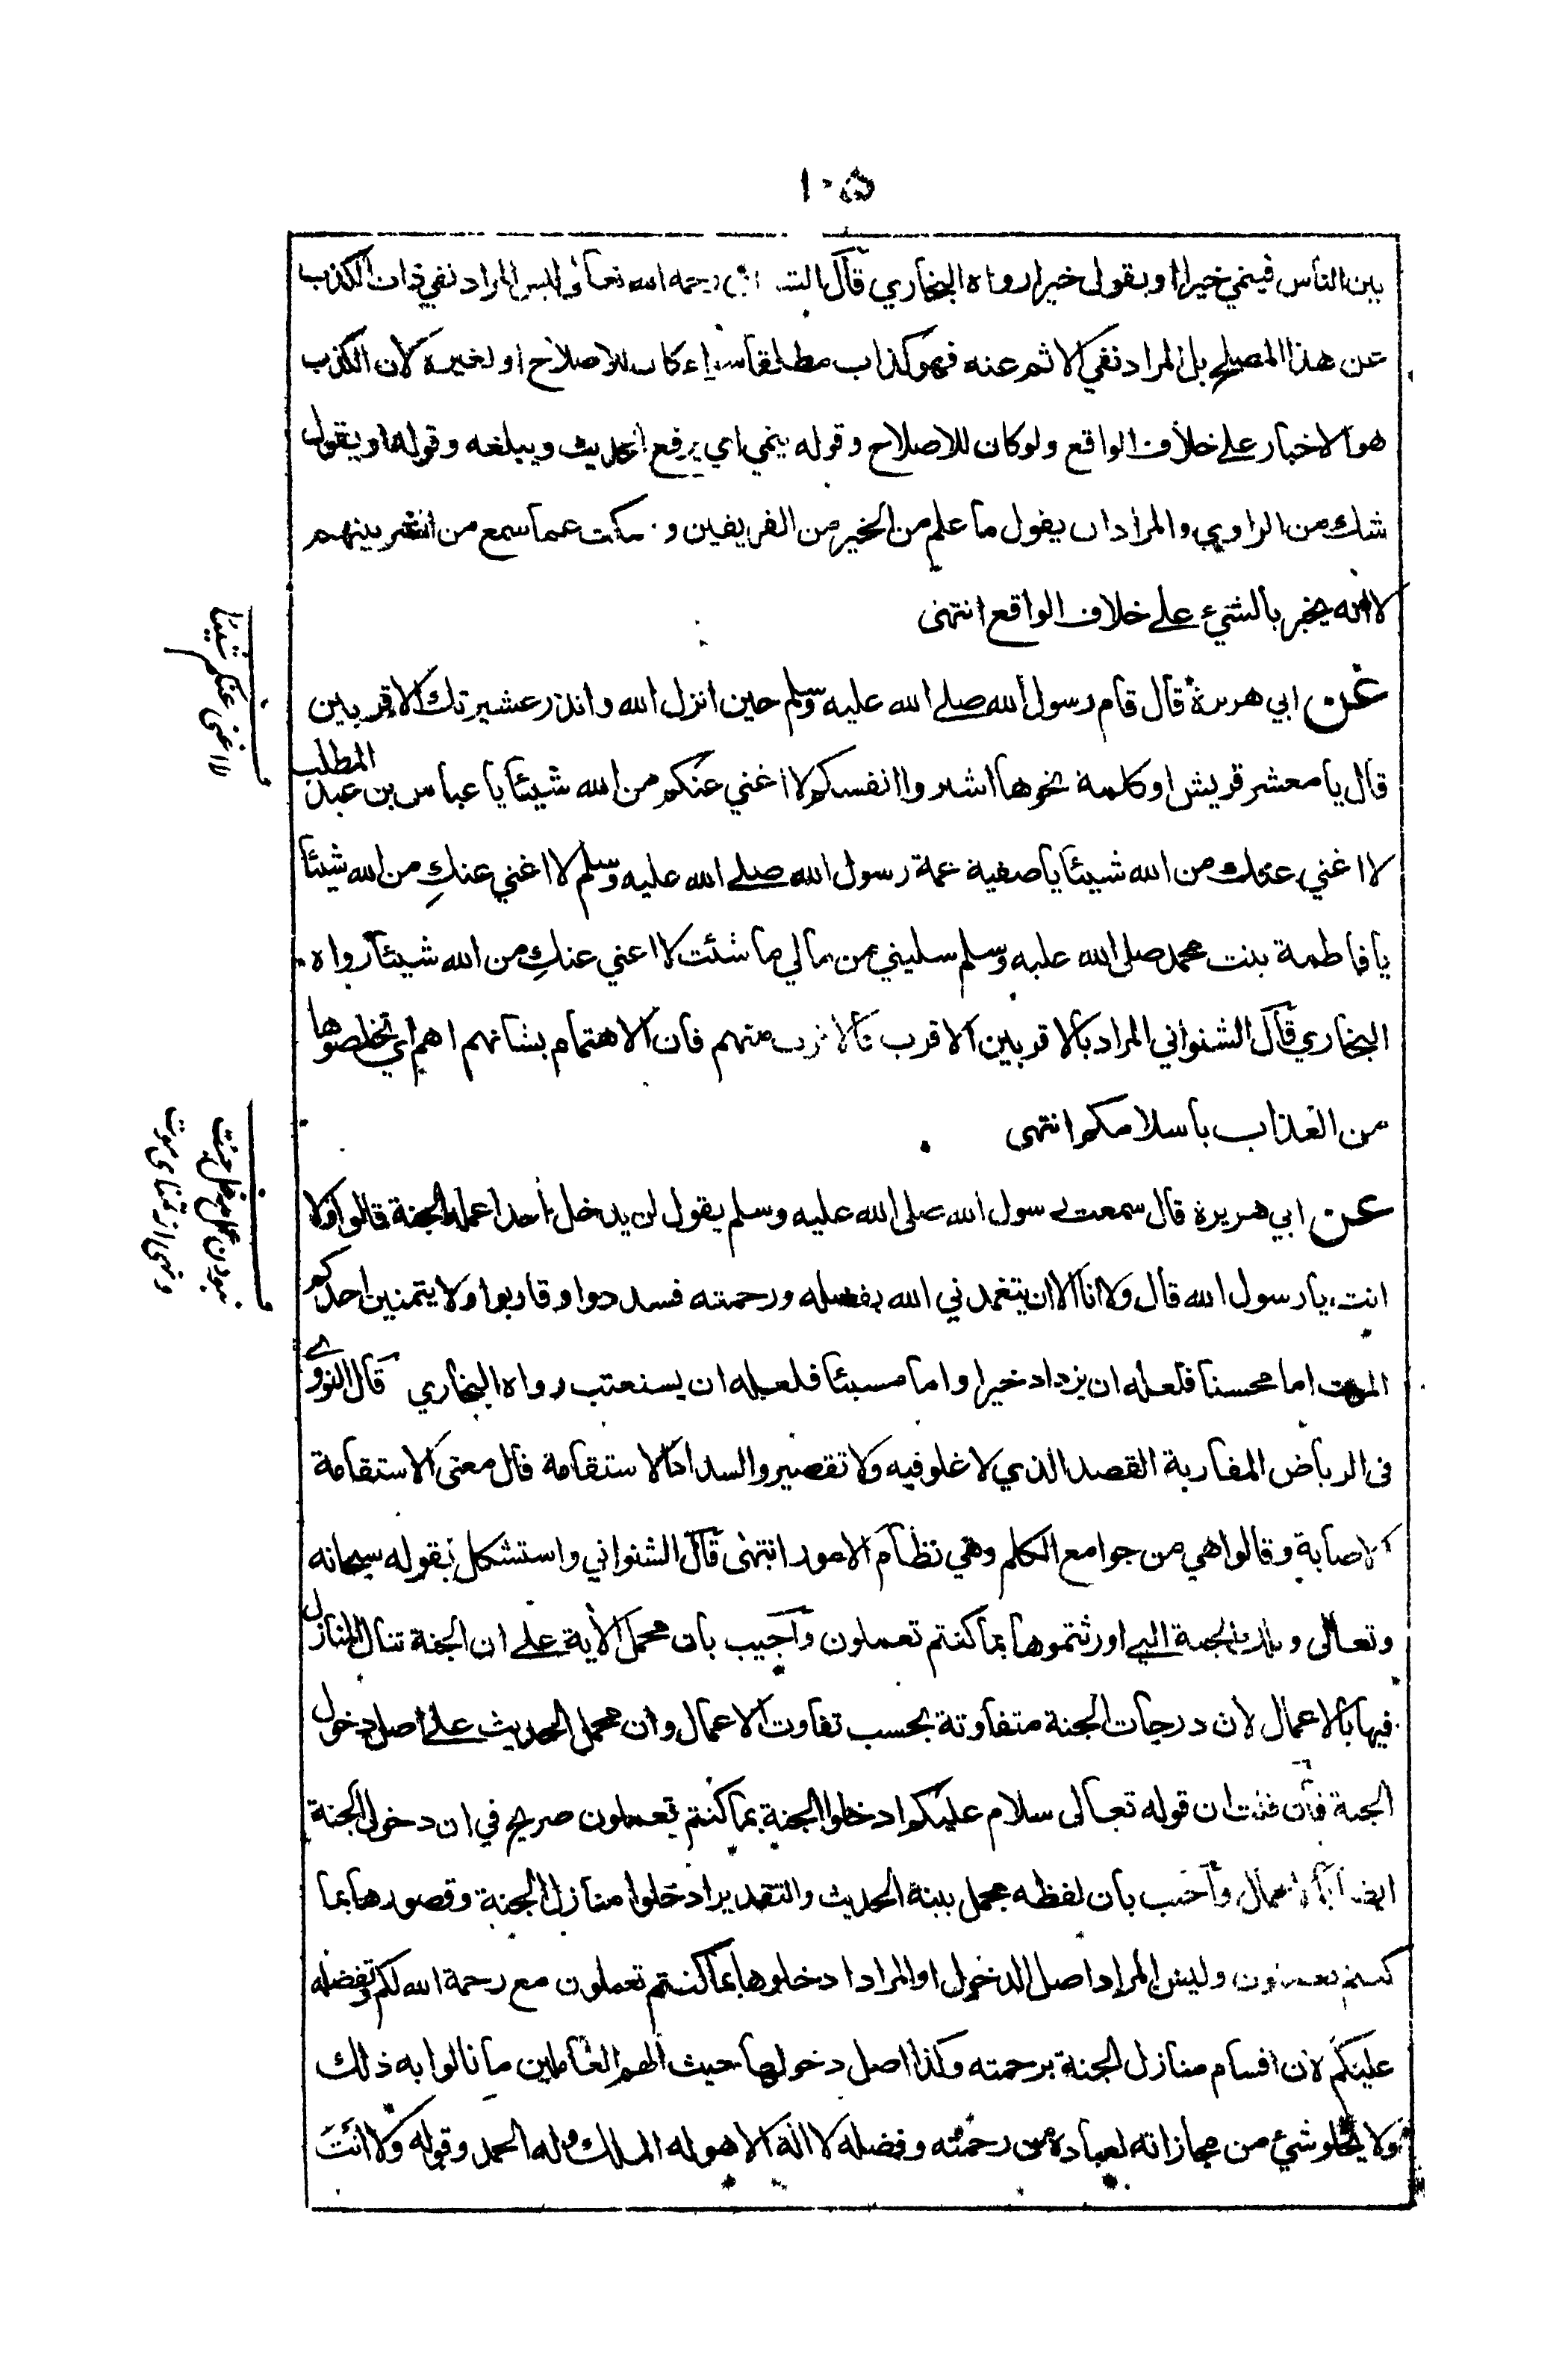 ۱۰۵
بين الناس فينمي خيرا او يقول خيرا رواه البخاري قال رحمه الله تعالى ليس المراد نفي ذات الكذب
عن هذا المصلح بل المراد نفي الاثم عنه فهو كذاب مطلقا سواء كان للاصلاح او لغيره لان الكذب
هو الاخبار على خلاف الواقع ولو كان للاصلاح وقوله ينمي اي يرفع الحديث ويبلغه وقوله او يقول
شك من الراوي والمراد ان يقول ما علم من الخير من الفريقين و يسكت عما سمع من الشر بينهم
لا انه يخبر بالشيء على خلاف الواقع انتهى
عن ابي هريرة قال قام رسول الله صلى الله عليه وسلم حين انزل الله وانذر عشيرتك الاقربين
قال يا معشر قريش او كلمة نحوها اشتروا انفسكم لا اغني عنكم من الله شيئا يا عباس بن عبد المطلب
لا اغني عنك من الله شيئا يا صفية عمة رسول الله صلى الله عليه وسلم لا اغني عنكِ من الله شيئا
يا فاطمة بنت محمد صلى الله عليه وسلم سليني من مالي ما شئت لا اغني عنكِ من الله شيئا رواه
البخاري قال الشنواني المراد بالاقربين الاقرب فالاقرب منهم فان الاهتمام بشانهم اهم اي تخلصوها
من العذاب باسلامكم انتهى
عن ابي هريرة قال سمعت رسول الله صلى الله عليه وسلم يقول لن يدخل احدا عمله الجنة قالوا ولا
انت يا رسول الله قال ولا انا الا ان يتغمدني الله بفضله ورحمته فسددوا وقاربوا ولا يتمنين احدكم
الموت اما محسنا فلعله ان يزداد خيرا واما مسيئا فلعله ان يستعتب رواه البخاري قال النووي
فى الرياض المقاربة القصد الذي لا غلو فيه ولا تقصير والسداد الاستقامة قال معنى الاستقامة
الاصابة وقالوا هي من جوامع الكلم وهي نظام الامور انتهى قال الشنواني واستشكل بقوله سبحانه
وتعالى وتلك الجنة التي اورثتموها بما كنتم تعملون واجيب بان محمل الاية على ان الجنة تنال المنازل
فيها بالاعمال لان درجات الجنة متفاوتة بحسب تفاوت الاعمال وان محمل الحديث على اصل دخول
الجنة فان قلت ان قوله تعالى سلام عليكم ادخلوا الجنة بما كنتم تعملون صريح في ان دخول الجنة
ايضا بالاعمال واجيب بان لفظه مجمل بينه الحديث والتقدير ادخلوا منازل الجنة وقصورها بما
كنتم تعملون وليس المراد اصل الدخول او المراد ادخلوها بما كنتم تعملون مع رحمة الله لكم وتفضله
عليكم لان اقسام منازل الجنة برحمته وكذا اصل دخولها حيث الهم العاملين ما نالوا به ذلك
ولا يخلو شيء من مجازاته لعباده من رحمته وفضله لا اله الا هو له الملك وله الحمد وقوله ولا انت
لا اغنى عنكم شيئا
نبودن عمل مدخل جنت
و نهى از تمناى موت